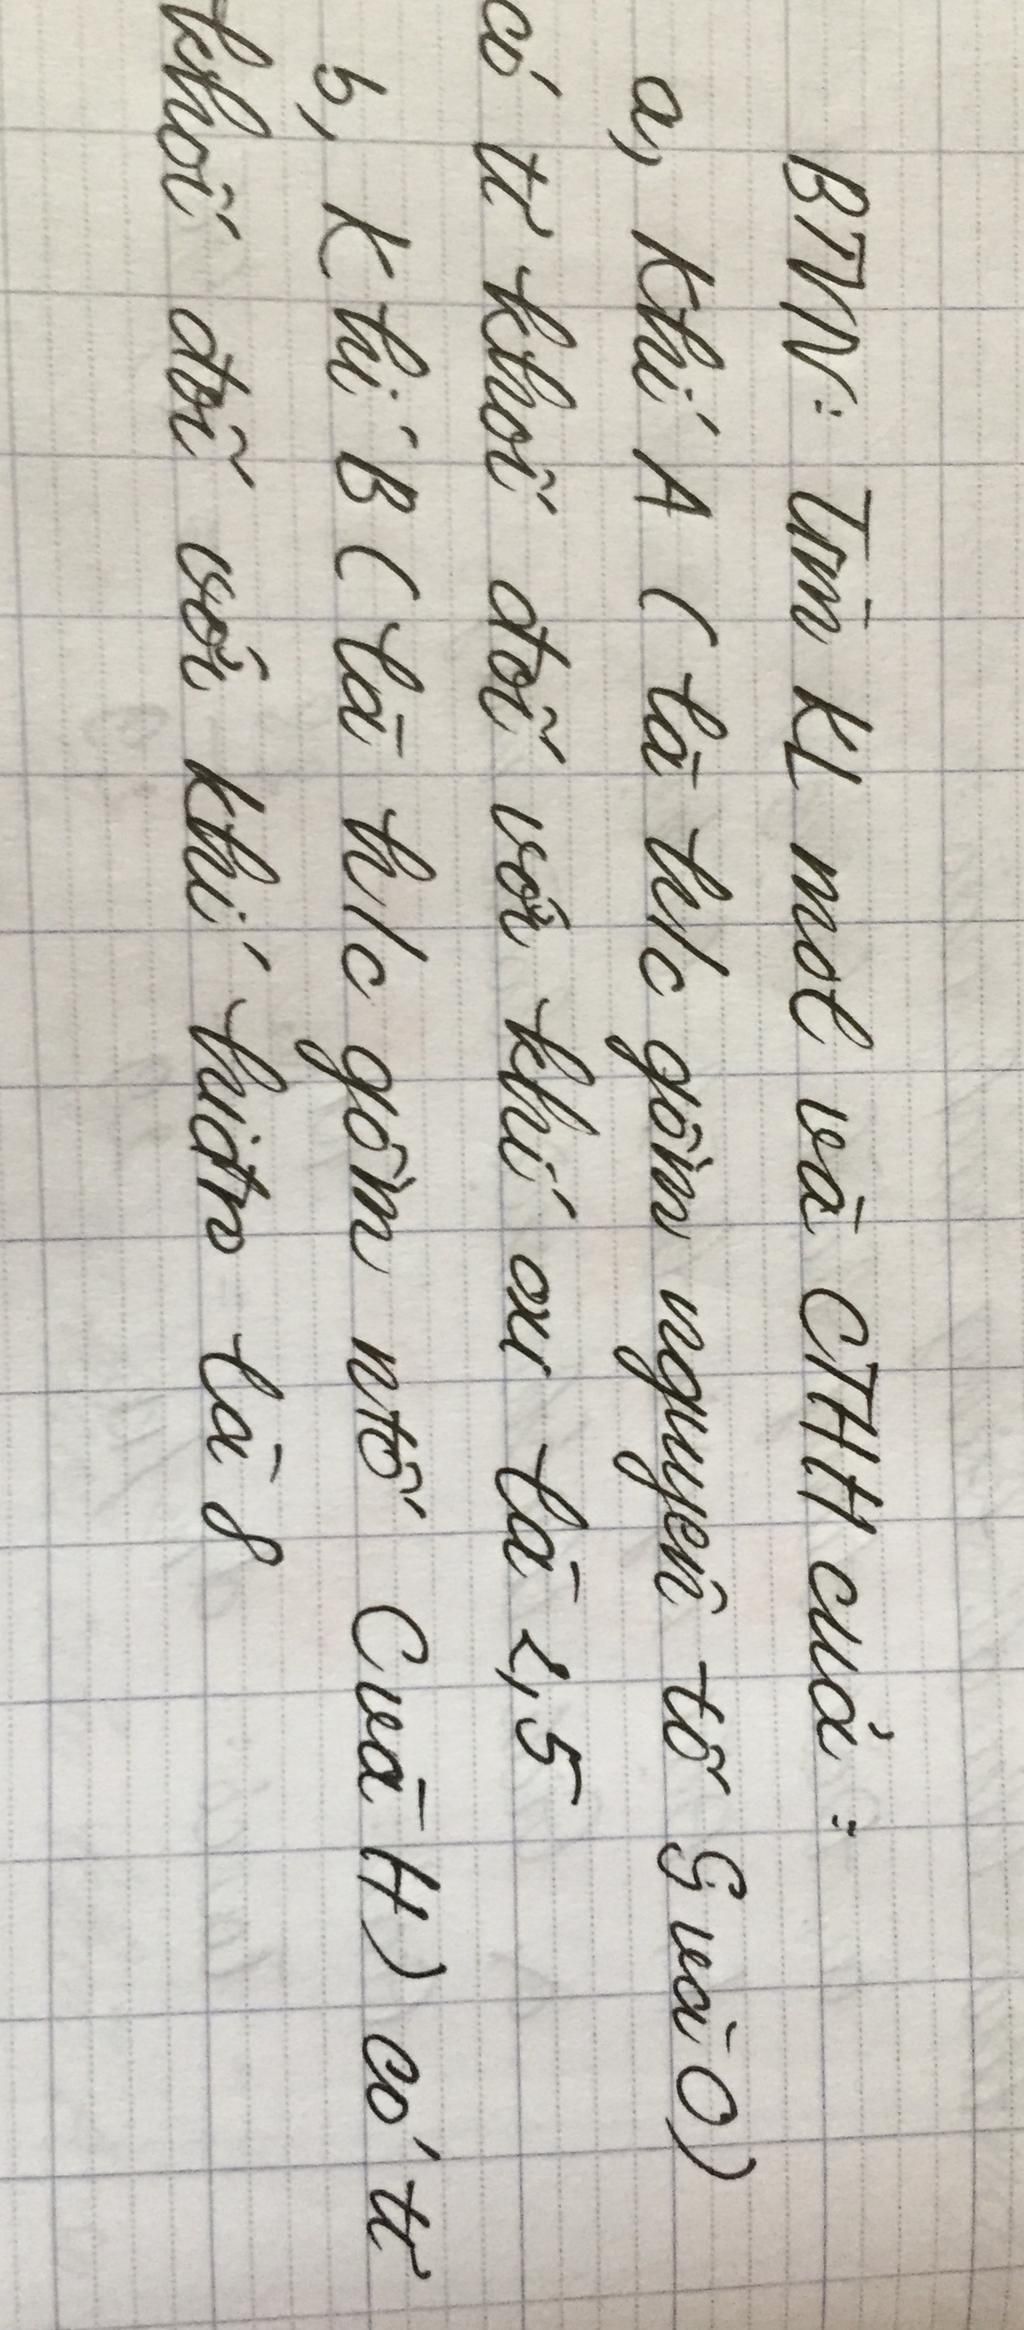 BTVN: Tìm KL mol và CTHH của:
a, Khí A ( là h/c gồm nguyên tố S và O)
có tỉ khối đối với khí oxi là 2,5
b, Khí B ( là h/c gồm ntố C và H) có tỉ
khối đối với khí hiđro là 8